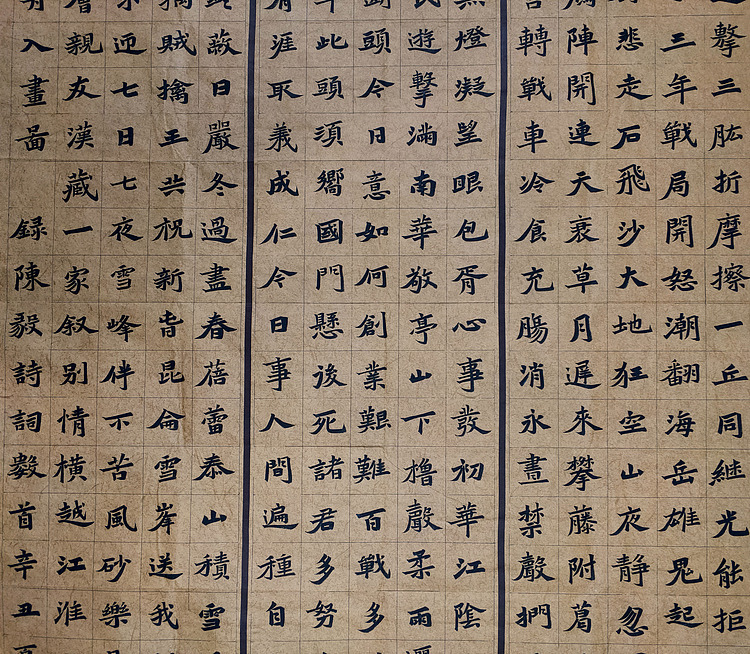 擊三肱折摩擦一丘同継光能拒
三年戦局開怒潮翻海岳雄鬼起
悲走石飛沙大地狂空山夜靜忽
陣開連天衰草月遲來攀藤附葛
轉戦車冷食充腸消永晝禁聲捫
燈凝望眼包胥心事發初華江陰
遊擊滿南華敬亭山下櫓聲柔雨
頭今日意如何創業艱難百戦多
此頭須嚮國門懸後死諸君多努
涯取義成仁今日事人間遍種自
蔽日嚴冬過盡春蓓蕾泰山積雪
賊擒王共祝新旹昆侖雪峯送我
迎七日七夜雪峰伴不苦風砂樂
親友漢藏一家叙別情橫越江淮
入畫啚 錄陳毅詩詞數首辛丑